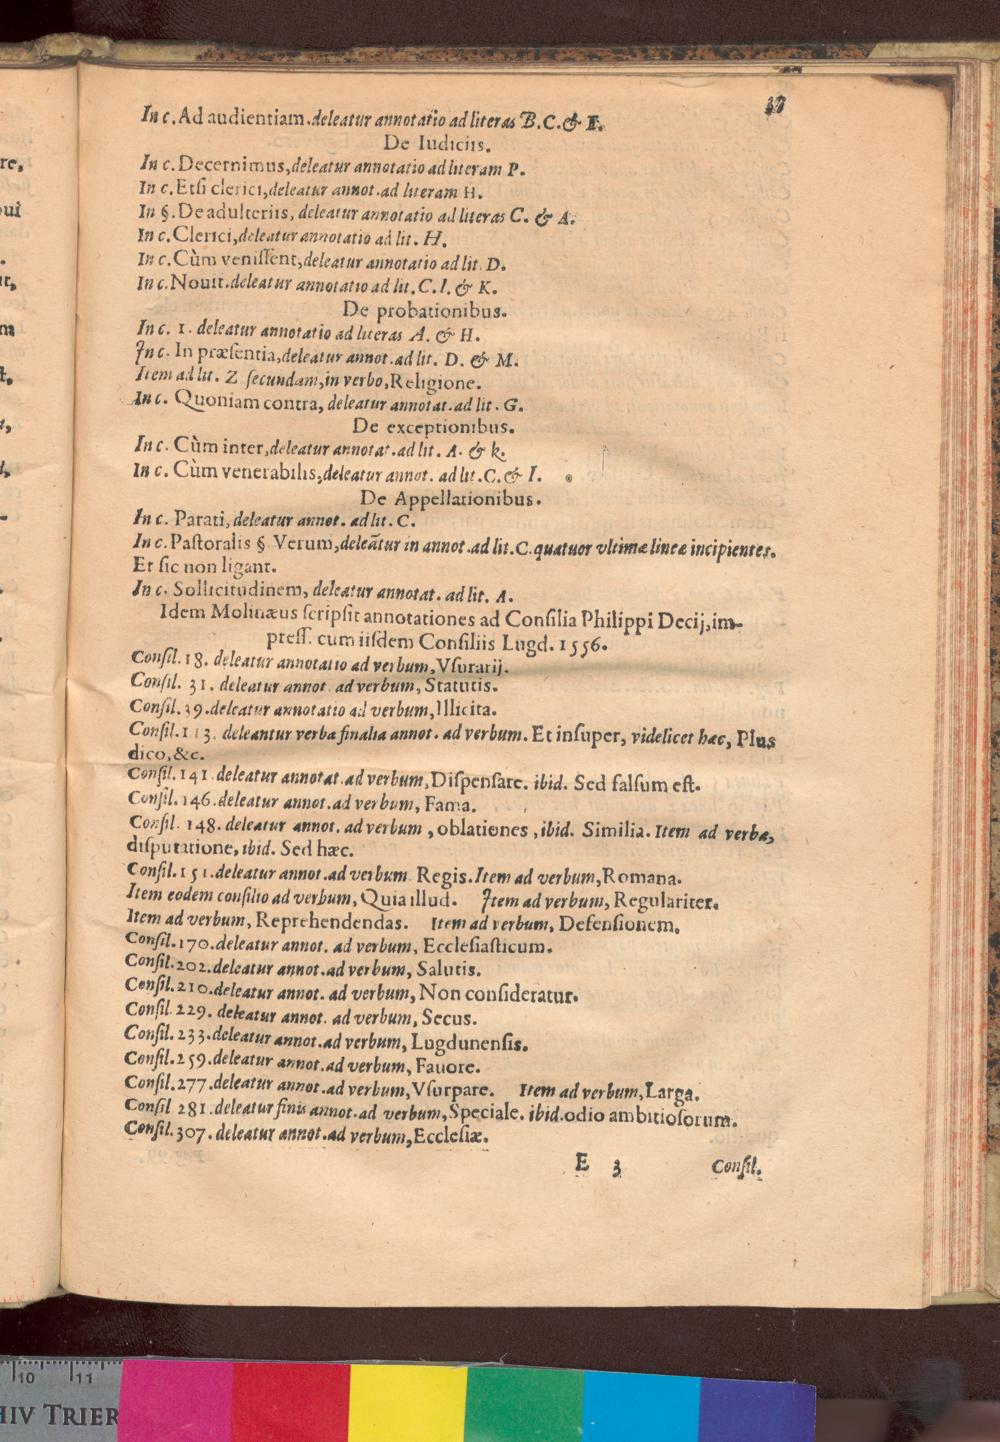 37
In c. Ad audientiam. deleatur annotatio ad literas B. C. & F.
De Iudiciis.
In c. Decernimus, deleatur annotatio ad literam P.
In c. Etsi clerici, deleatur annot. ad literam H.
In §. De adulteriis, deleatur annotatio ad literas C. & A.
In c. Clerici, deleatur annotatio ad lit. H.
In c. Cùm venissent, deleatur annotatio ad lit. D.
In c. Nouit. deleatur annotatio ad lit. C. I. & K.
De probationibus.
In c. 1. deleatur annotatio ad literas A. & H.
In c. In præsentia, deleatur annot. ad lit. D. & M.
Item ad lit. Z secundam, in verbo, Religione.
In c. Quoniam contra, deleatur annotat. ad lit. G.
De exceptionibus.
In c. Cùm inter, deleatur annotat. ad lit. A. & k.
In c. Cùm venerabilis, deleatur annot. ad lit. C. & I.
De Appellationibus.
In c. Parati, deleatur annot. ad lit. C.
In c. Pastoralis § Verum, deleātur in annot. ad lit. C. quatuor vltimæ lineæ incipientes.
Et sic non ligant.
In c. Sollicitudinem, deleatur annotat. ad lit. A.
Idem Molinæus scripsit annotationes ad Consilia Philippi Decij, im-
press. cum iisdem Consiliis Lugd. 1556.
Consil. 18. deleatur annotatio ad verbum, Vsurarij.
Consil. 31. deleatur annot. ad verbum, Statutis.
Consil. 39. deleatur annotatio ad verbum, Illicita.
Consil. 113. deleantur verba finalia annot. ad verbum. Et insuper, videlicet hæc, Plus
dico, &c.
Consil. 141. deleatur annotat. ad verbum, Dispensare. ibid. Sed falsum est.
Consil. 146. deleatur annot. ad verbum, Fama.
Consil. 148. deleatur annot. ad verbum, oblationes, ibid. Similia. Item ad verba,
disputatione, ibid. Sed hæc.
Consil. 151. deleatur annot. ad verbum Regis. Item ad verbum, Romana.
Item eodem consilio ad verbum, Quia illud. Item ad verbum, Regulariter.
Item ad verbum, Reprehendendas. Item ad verbum, Defensionem.
Consil. 170. deleatur annot. ad verbum, Ecclesiasticum.
Consil. 202. deleatur annot. ad verbum, Salutis.
Consil. 210. deleatur annot. ad verbum, Non consideratur.
Consil. 229. deleatur annot. ad verbum, Secus.
Consil. 233. deleatur annot. ad verbum, Lugdunensis.
Consil. 259. deleatur annot. ad verbum, Fauore.
Consil. 277. deleatur annot. ad verbum, Vsurpare. Item ad verbum, Larga.
Consil 281. deleatur finis annot. ad verbum, Speciale. ibid. odio ambitiosorum.
Consil. 307. deleatur annot. ad verbum, Ecclesiæ.
E 3 Consil.
10 11
HIV TRIER